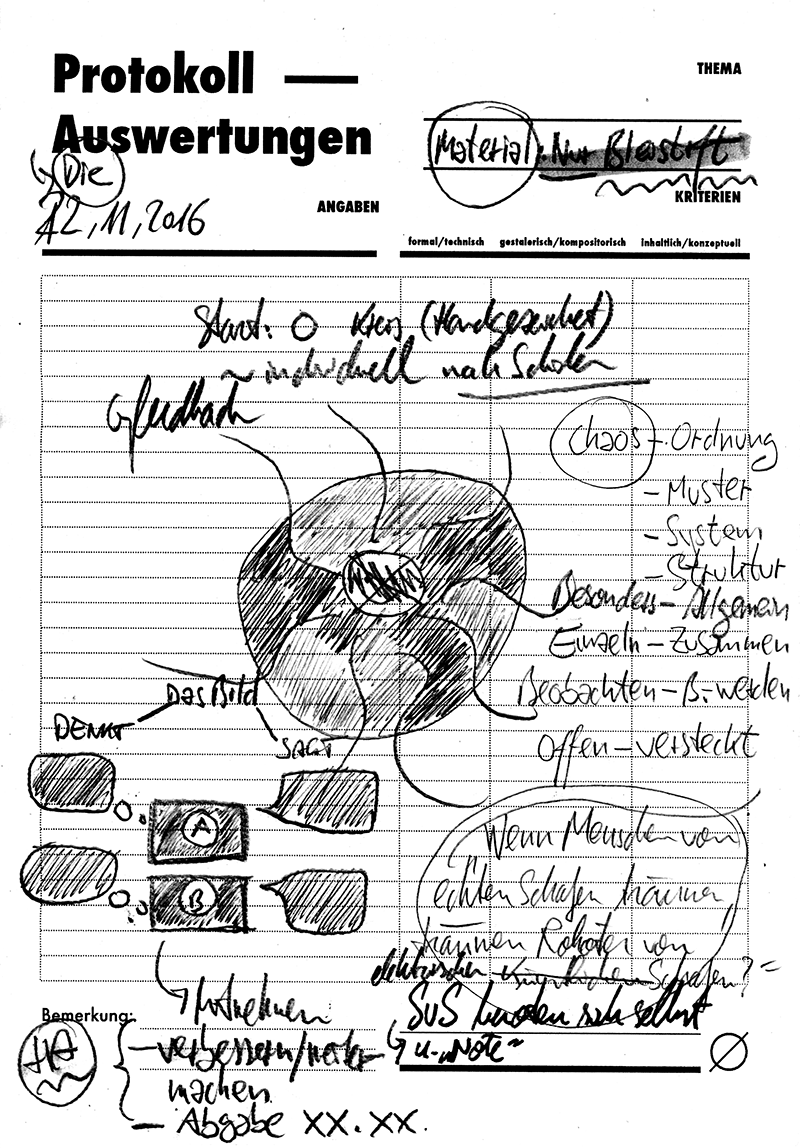 Protokoll —
Auswertungen
Die
22, 11, 2016
ANGABEN
THEMA
Material: Nur Bleistift
KRITERIEN
formal/technisch gestalerisch/kompositorisch inhaltlich/konzeptuell
Start: O Kreis (Handgezeichnet)
~ individuell nach
Feedback
Chaos – Ordnung
– Muster
– System
– Struktur
Besonders – Allgemein
Einzeln – Zusammen
Beobachten – B. werden
Offen – versteckt
Das Bild
DENKT
SAGT
A
B
Wenn Menschen von
echten Schafen träumen,
träumen Roboter von
elektrischen künstlichen Schafen?
Mitnehmen
Bemerkung:
HA
– verbessern/weiter
machen
– Abgabe XX.XX.
SuS sich selbst
u. „Note"
Ø